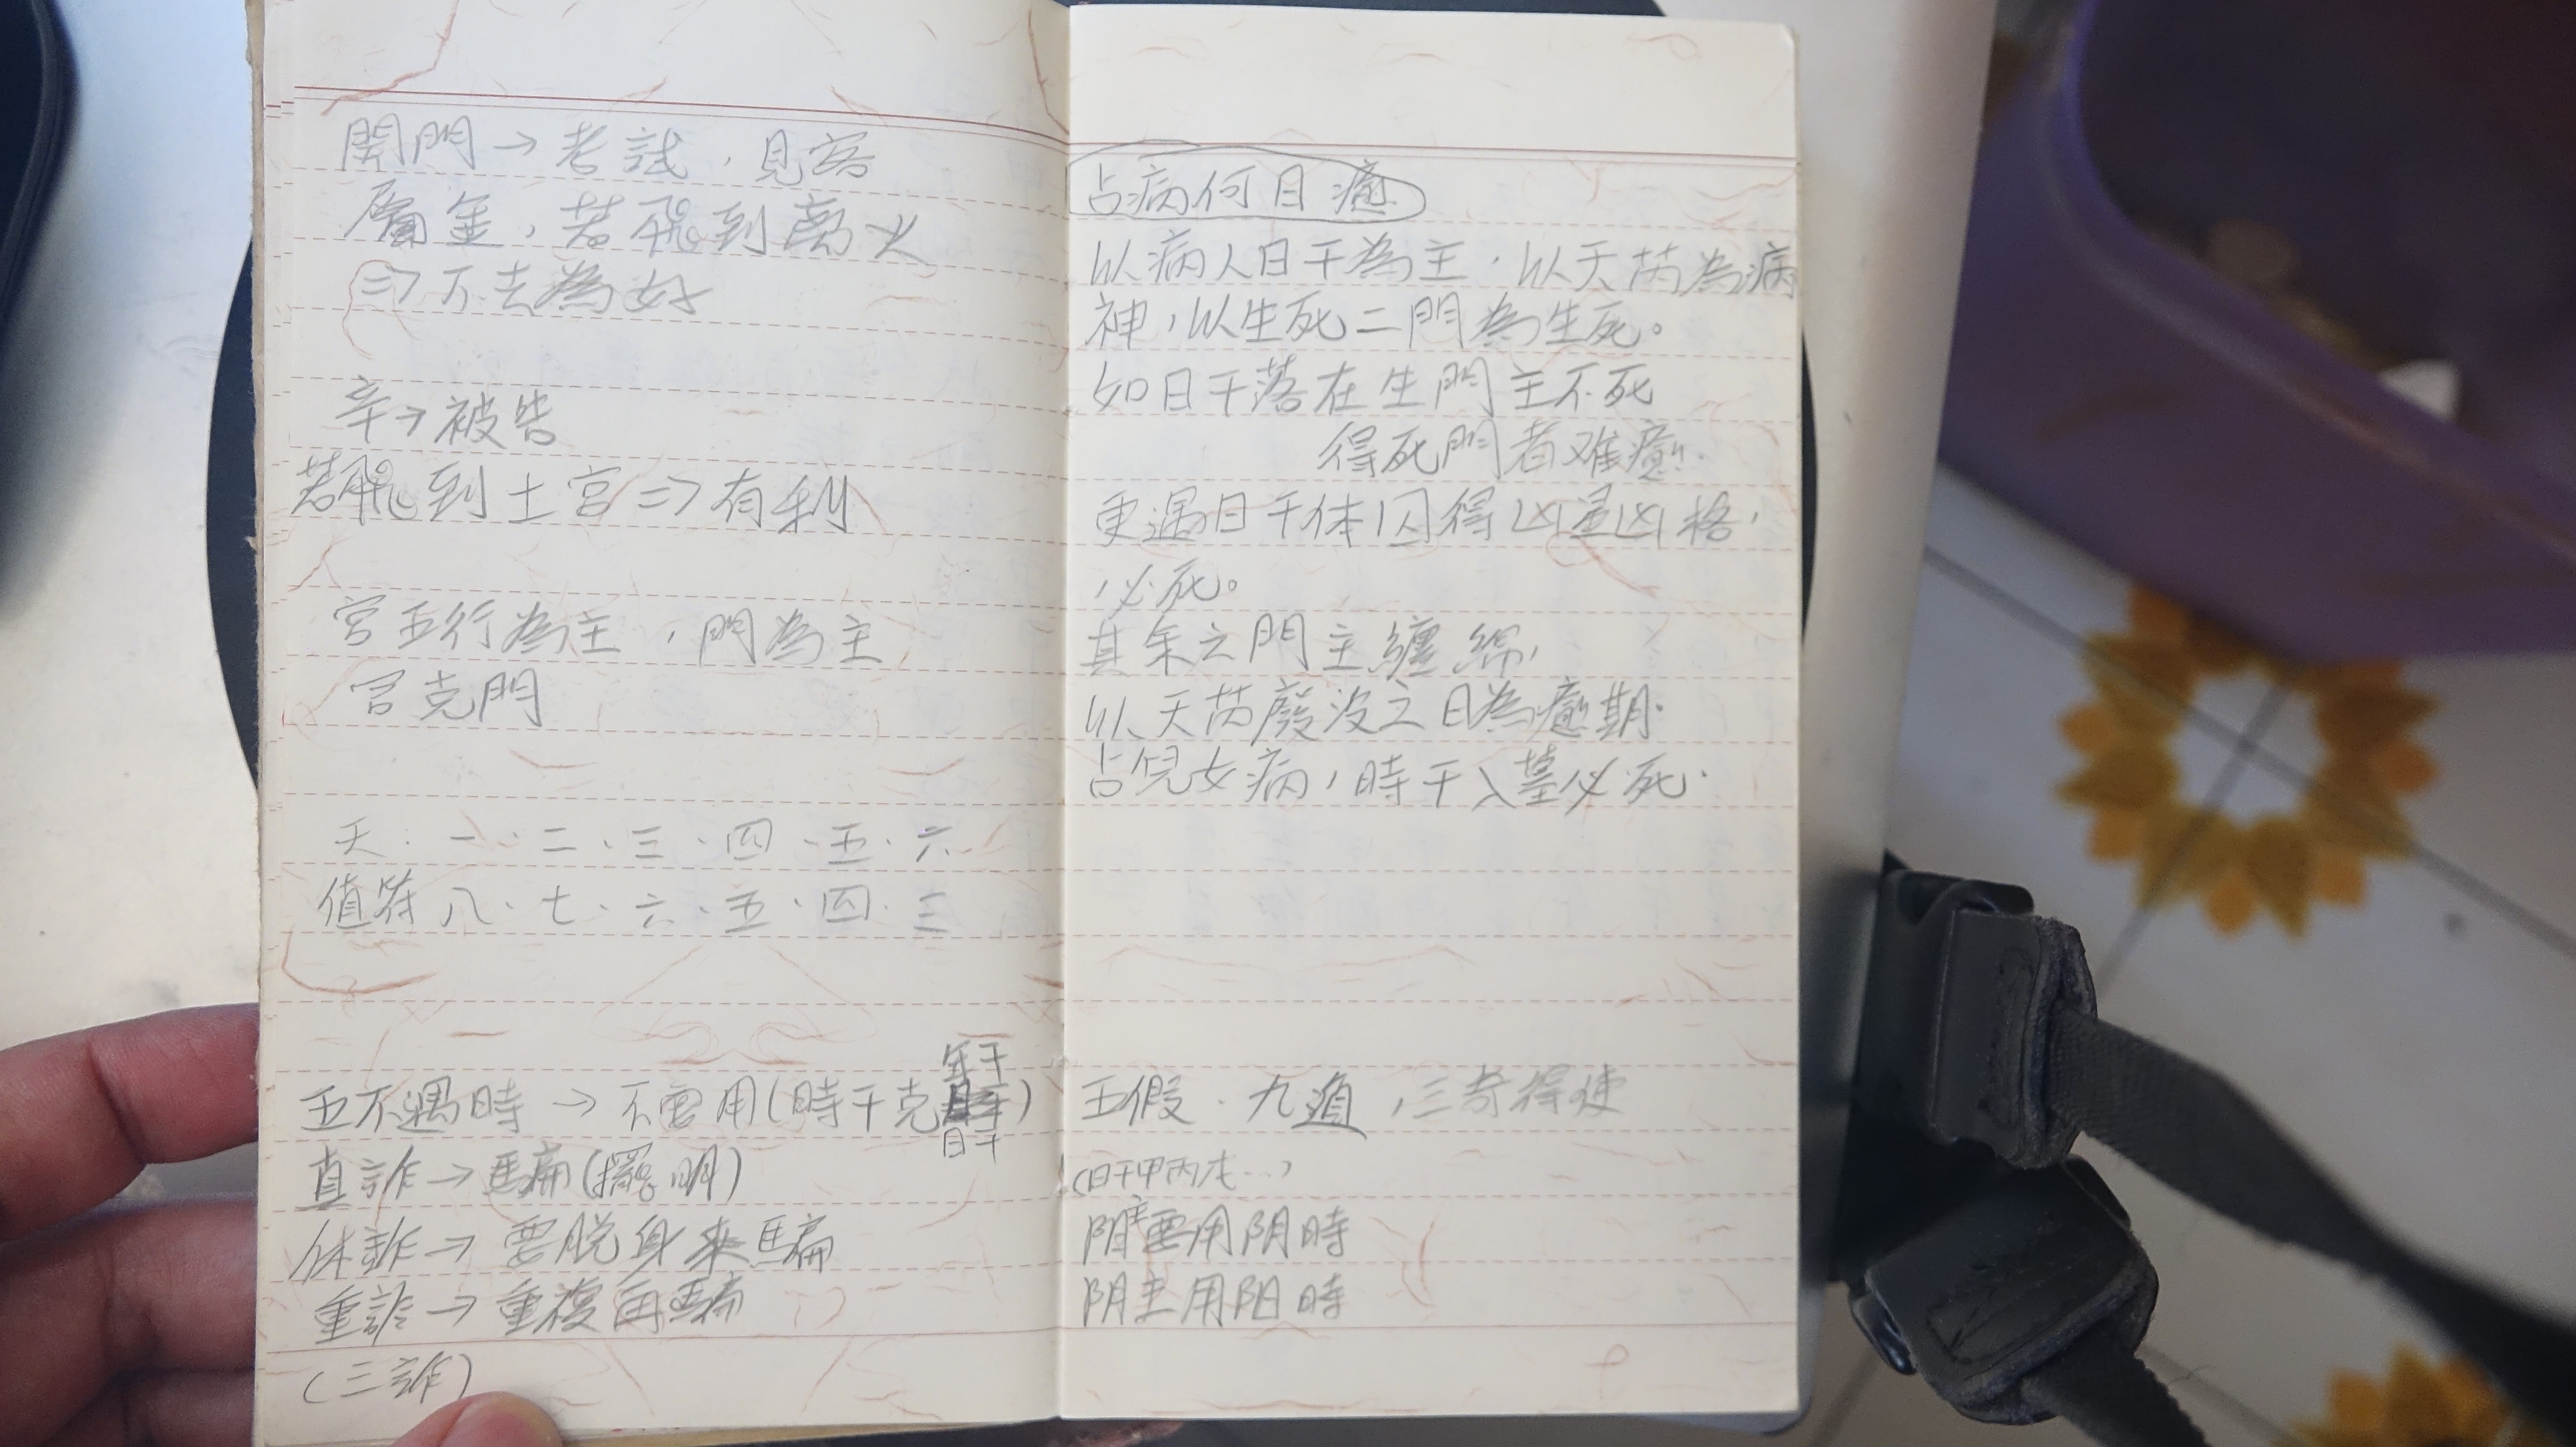 開門→考試，見客
屬金，若飛到离火
⇒不去為好
辛→被告
若飛到土宮⇒有利
宮五行為主，門為主
宮克門
天：一、二、三、四、五、六
值符 八、七、六、五、四、三
年干
五不遇時→不要用(時干克)
日干
直詐→騙(擺明)
休詐→要脱身來騙
重詐→重複再騙
(三詐)
占病何日癒
以病人日干為主，以天芮為病
神，以生死二門為生死。
如日干落在生門主不死
得死門者难癒.
更遇日干休囚得凶星凶格，
必死。
其余之門主纏綿，
以天芮廢没之日為癒期.
占兒女病，時干入墓必死.
五假、九遁，三奇得使
(日干甲丙戊…)
用阴時
阴主用阳時